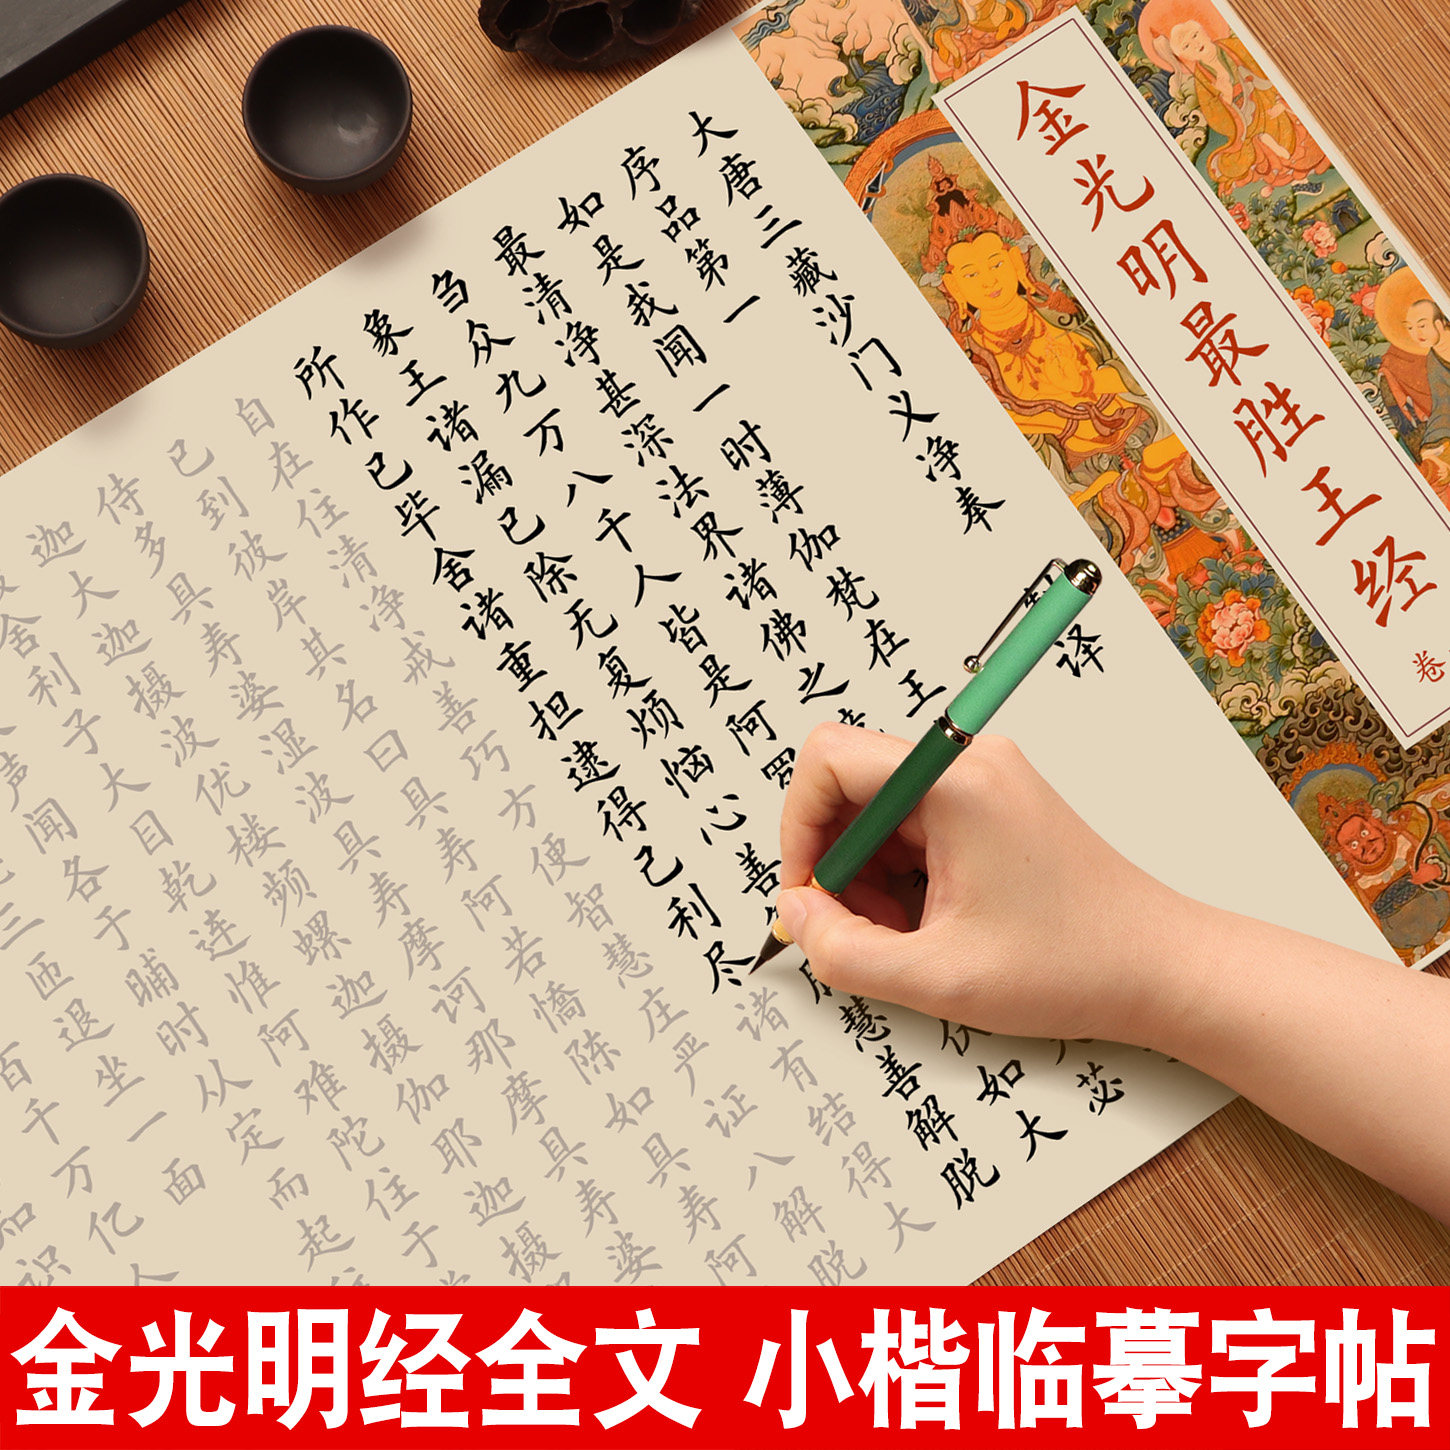 金光明最胜王经
卷
大唐三藏沙门义净奉译
序品第一
如是我闻一时薄伽梵在王
最清净甚深法界诸佛之苾
刍众九万八千人皆是阿罗伏如大
象王诸漏已除无复烦恼心善脱慧善解脱
所作已毕舍诸重担逮得己利尽诸有结得大
自在住清净戒善巧方便智慧庄严证八解脱
已到彼岸其名曰具寿阿若憍陈如具寿阿
侍多具寿婆湿波具寿摩诃那摩具寿婆
迦大迦摄波优楼频螺迦摄伽耶迦摄
舍利子大目乾连惟阿难陀住于
声闻各于晡时从定而起往
三匝退坐一面
百千万亿人
知识
金光明经全文 小楷临摹字帖